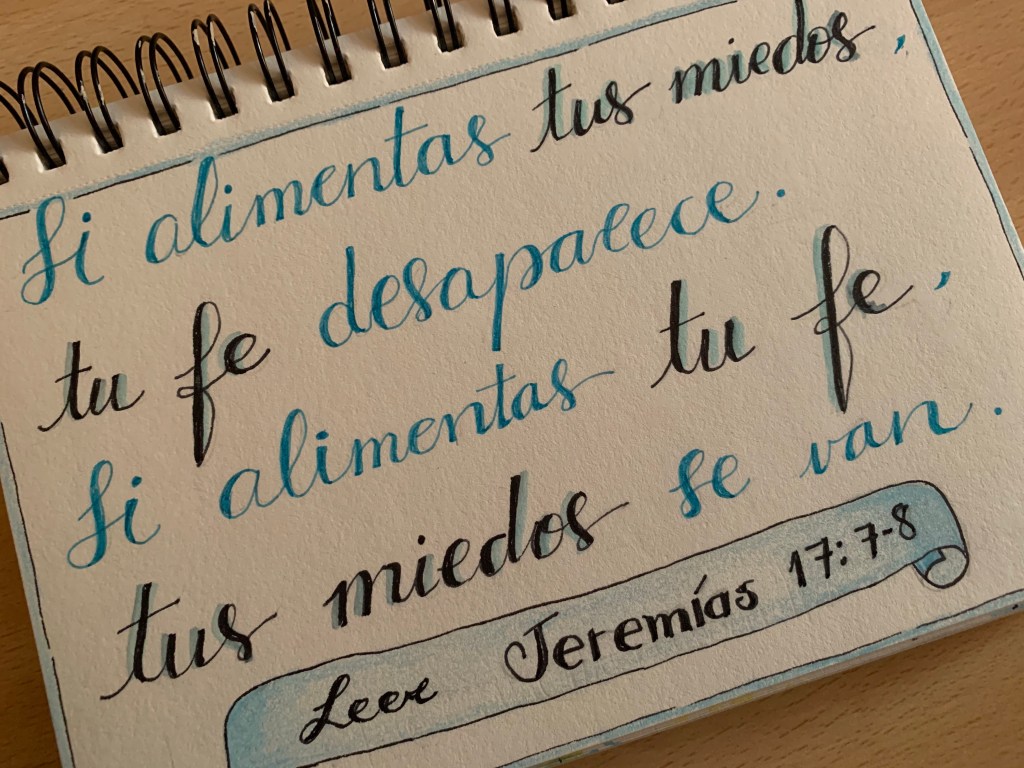 Si alimentas tus miedos,
tu fe desaparece.
Si alimentas tu fe,
tus miedos se van.
Leer Jeremías 17:7-8